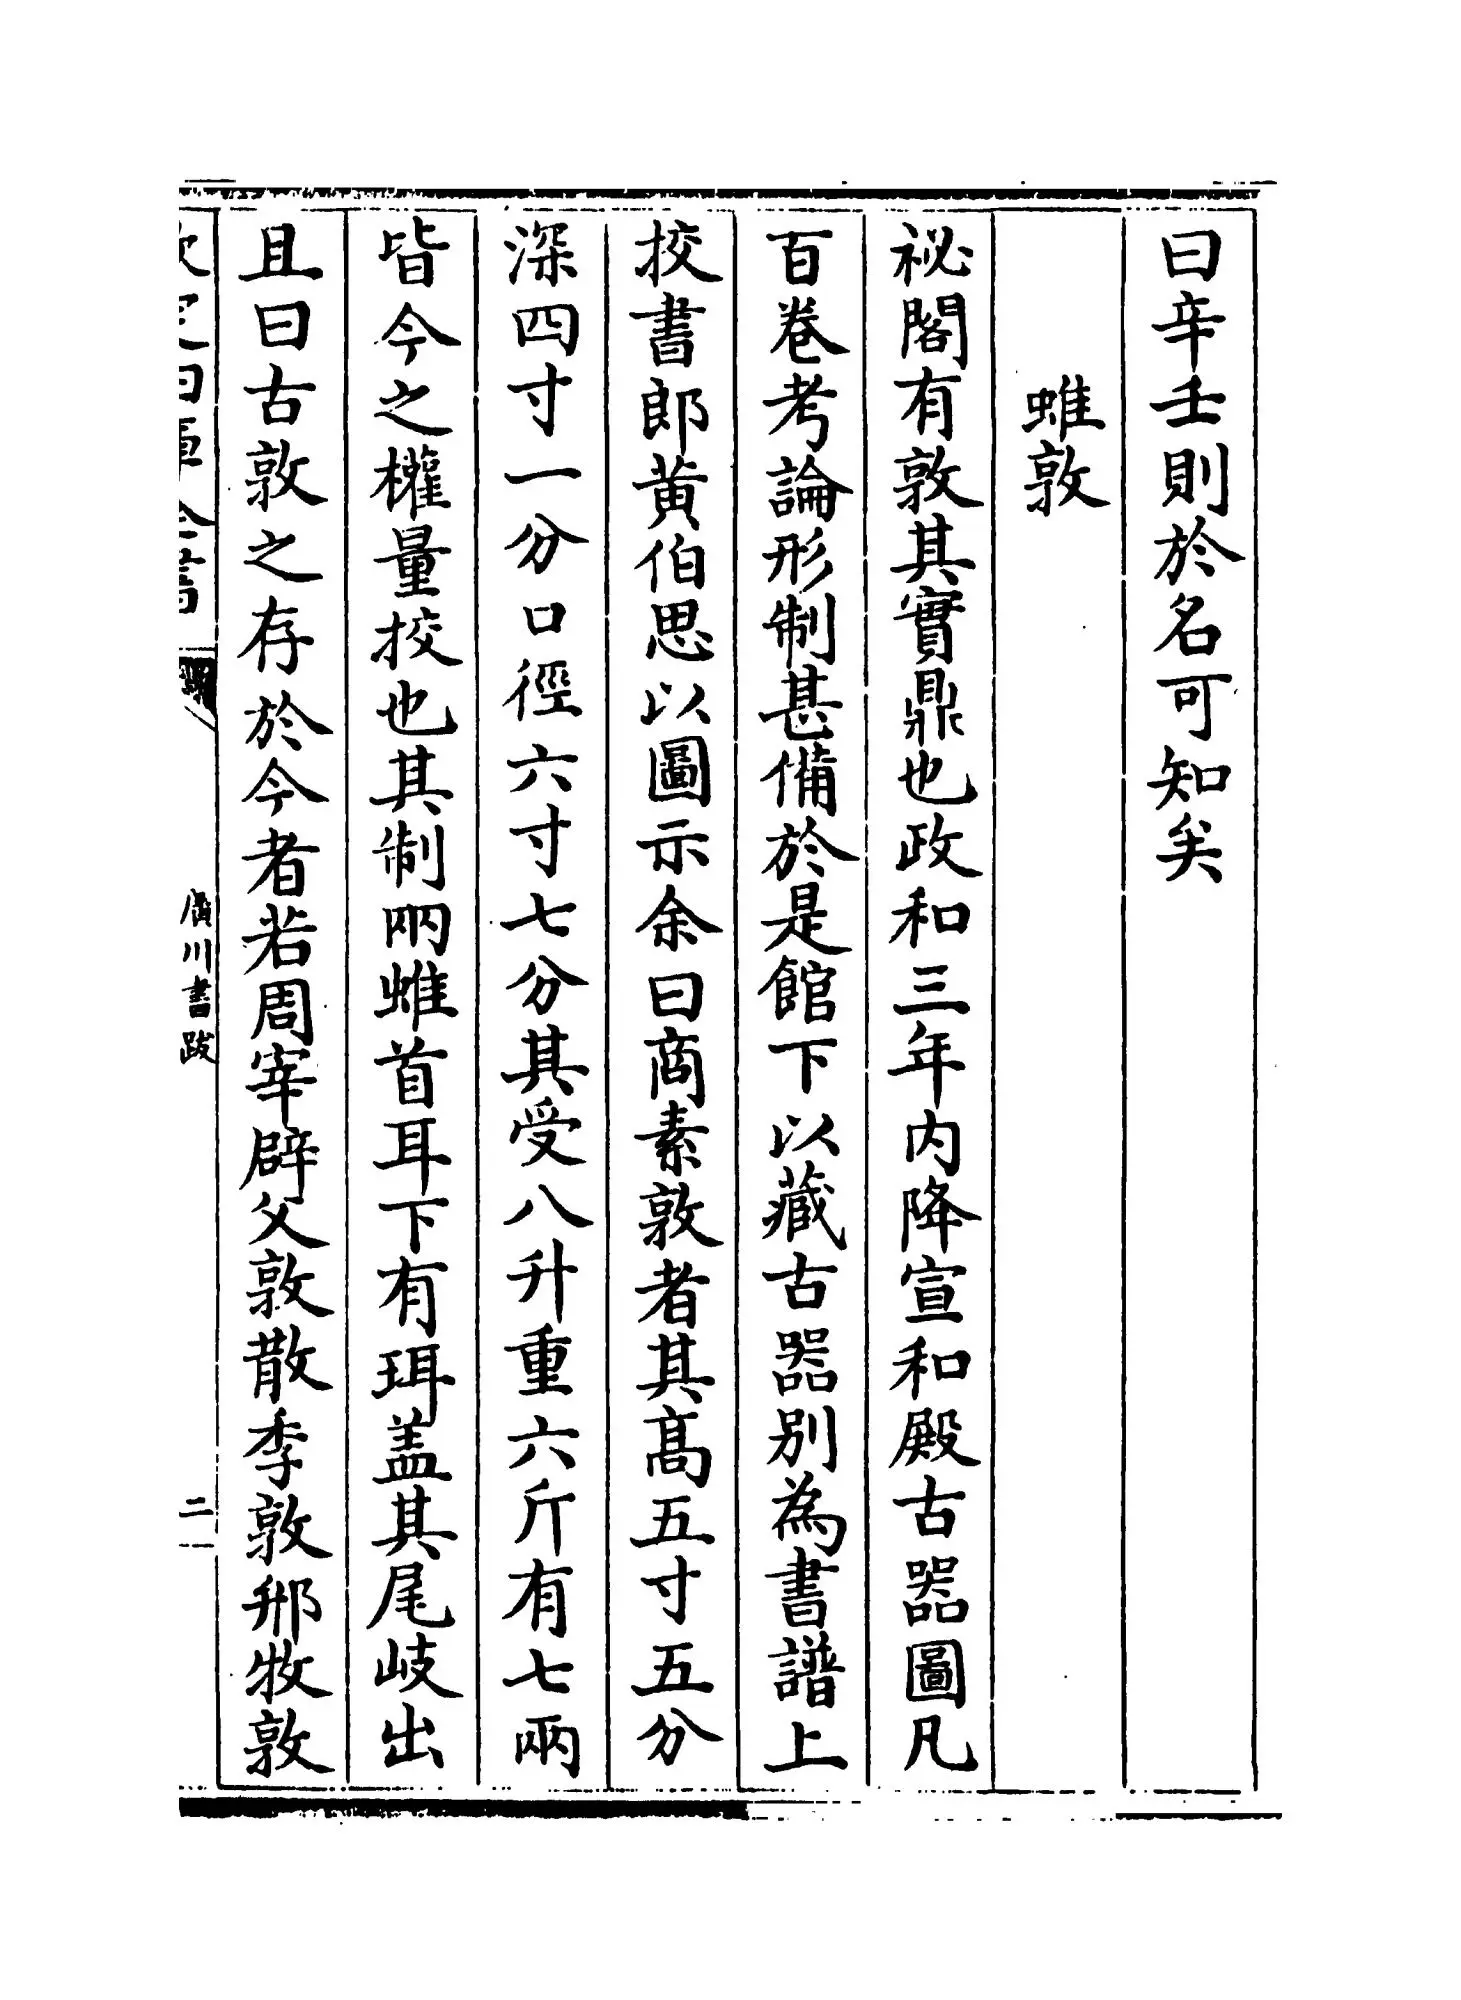 曰辛壬則於名可知矣
蜼敦
祕閣有敦其實鼎也政和三年内降宣和殿古器圖凡
百卷考論形制甚備於是館下以藏古器别為書譜上
挍書郎黄伯思以圖示余曰商素敦者其髙五寸五分
深四寸一分口徑六寸七分其受八升重六斤有七兩
皆今之權量挍也其制兩蜼首耳下有珥盖其尾岐出
且曰古敦之存於今者若周宰辟父敦散季敦邢牧敦
欽定四庫全書
廣川書跋
二